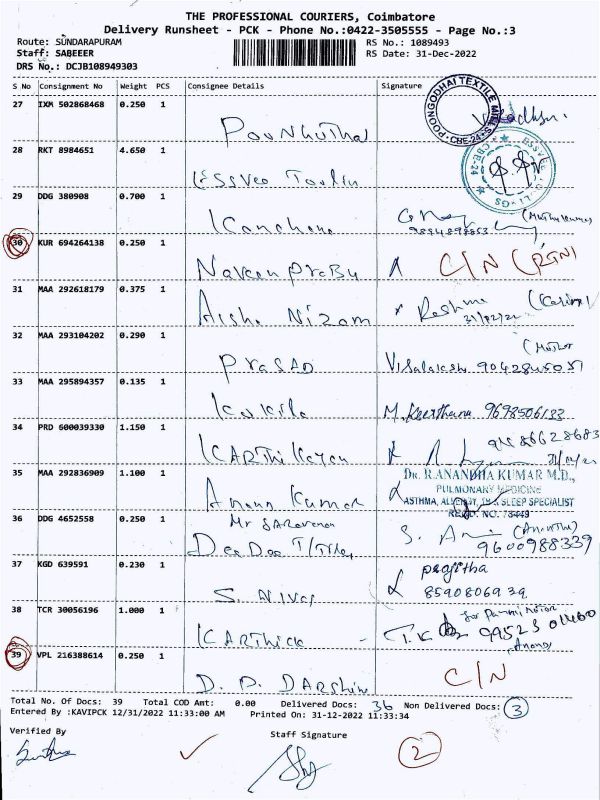 THE PROFESSIONAL COURIERS, Coimbatore
Delivery Runsheet - PCK - Phone No.:0422-3505555 - Page No.:3
Route: SUNDARAPURAM RS No.: 1089493
Staff: SABEEER RS Date: 31-Dec-2022
DRS No.: DCJB108949303
S No Consignment No Weight PCS Consignee Details Signature
27 IXM 502868468 0.250 1
POONGODHAI TEXTILE MILLS CBE-24
28 RKT 8984651 4.650 1
CBE-24
29 DDG 380908 0.700 1
30 KUR 694264138 0.250 1
Naveen Prabu C/N (RTN)
31 MAA 292618179 0.375 1
Aisha Nizam Reshma
32 MAA 293104202 0.290 1
(Mother
PRASAD Visalakshi 9042845051
33 MAA 295894357 0.135 1
Kokila M. Keerthana
34 PRD 600039330 1.150 1
KARThikeyan
35 MAA 292836909 1.100 1
DR. R.ANANDHA KUMAR M.D.,
PULMONARY MEDICINE
Anand Kumar ASTHMA, ALLERGY, SLEEP SPECIALIST
REGD. NO. 78449
36 DDG 4652558 0.250 1
Mr Saravanan
9600988339
37 KGD 639591 0.230 1
8590806939
38 TCR 30056196 1.000 1
KARThick T.K
39 VPL 216388614 0.250 1
D. D. DARShin C/N
Total No. Of Docs: 39 Total COD Amt: 0.00 Delivered Docs: 36 Non Delivered Docs: 3
Entered By :KAVIPCK 12/31/2022 11:33:00 AM Printed On: 31-12-2022 11:33:34
Verified By Staff Signature
2